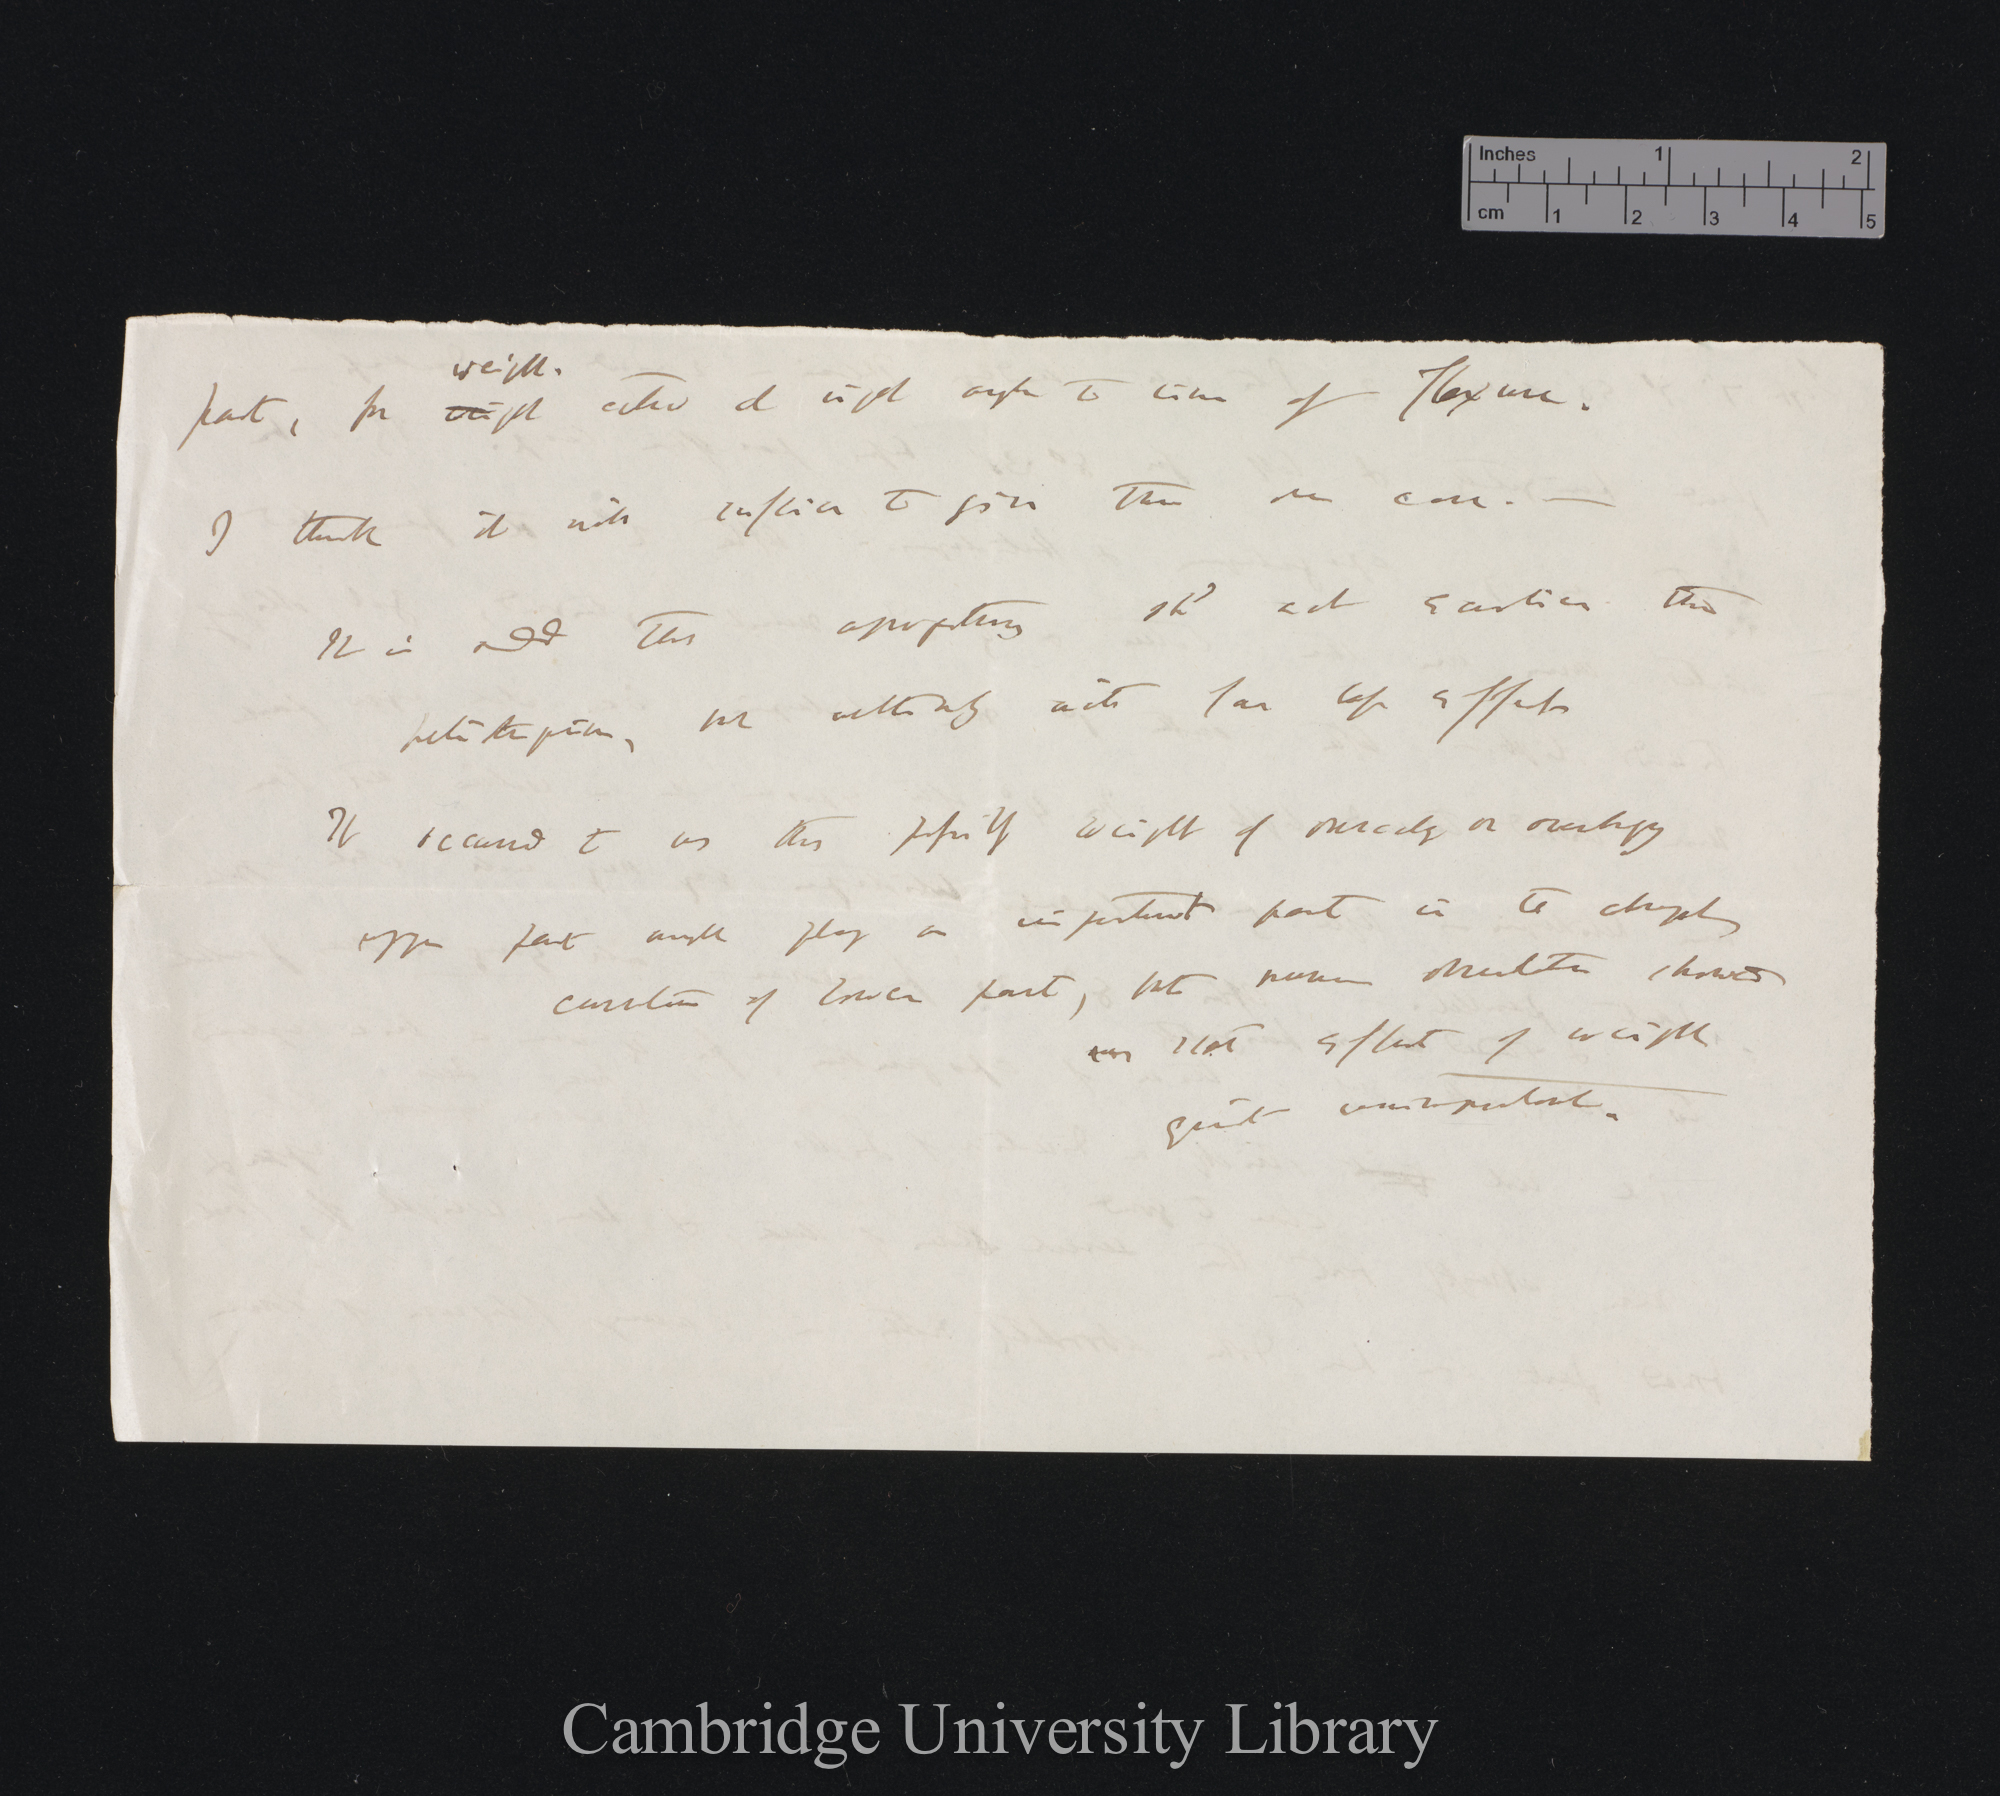 Inches 1 2
cm 1 2 3 4 5
weight.
part, for weight acted at right angles to line of flexure.
I think it will suffice to give this one case. —
It is odd that apogeotropism shd act earlier than
heliotropism, but ultimately with far less effect
It occurred to us that possibly weight of overhanging
upper part might play an important part in the
curvature of lower part, but numerous observations showed
us that effect of weight
quite unimportant.
Cambridge University Library